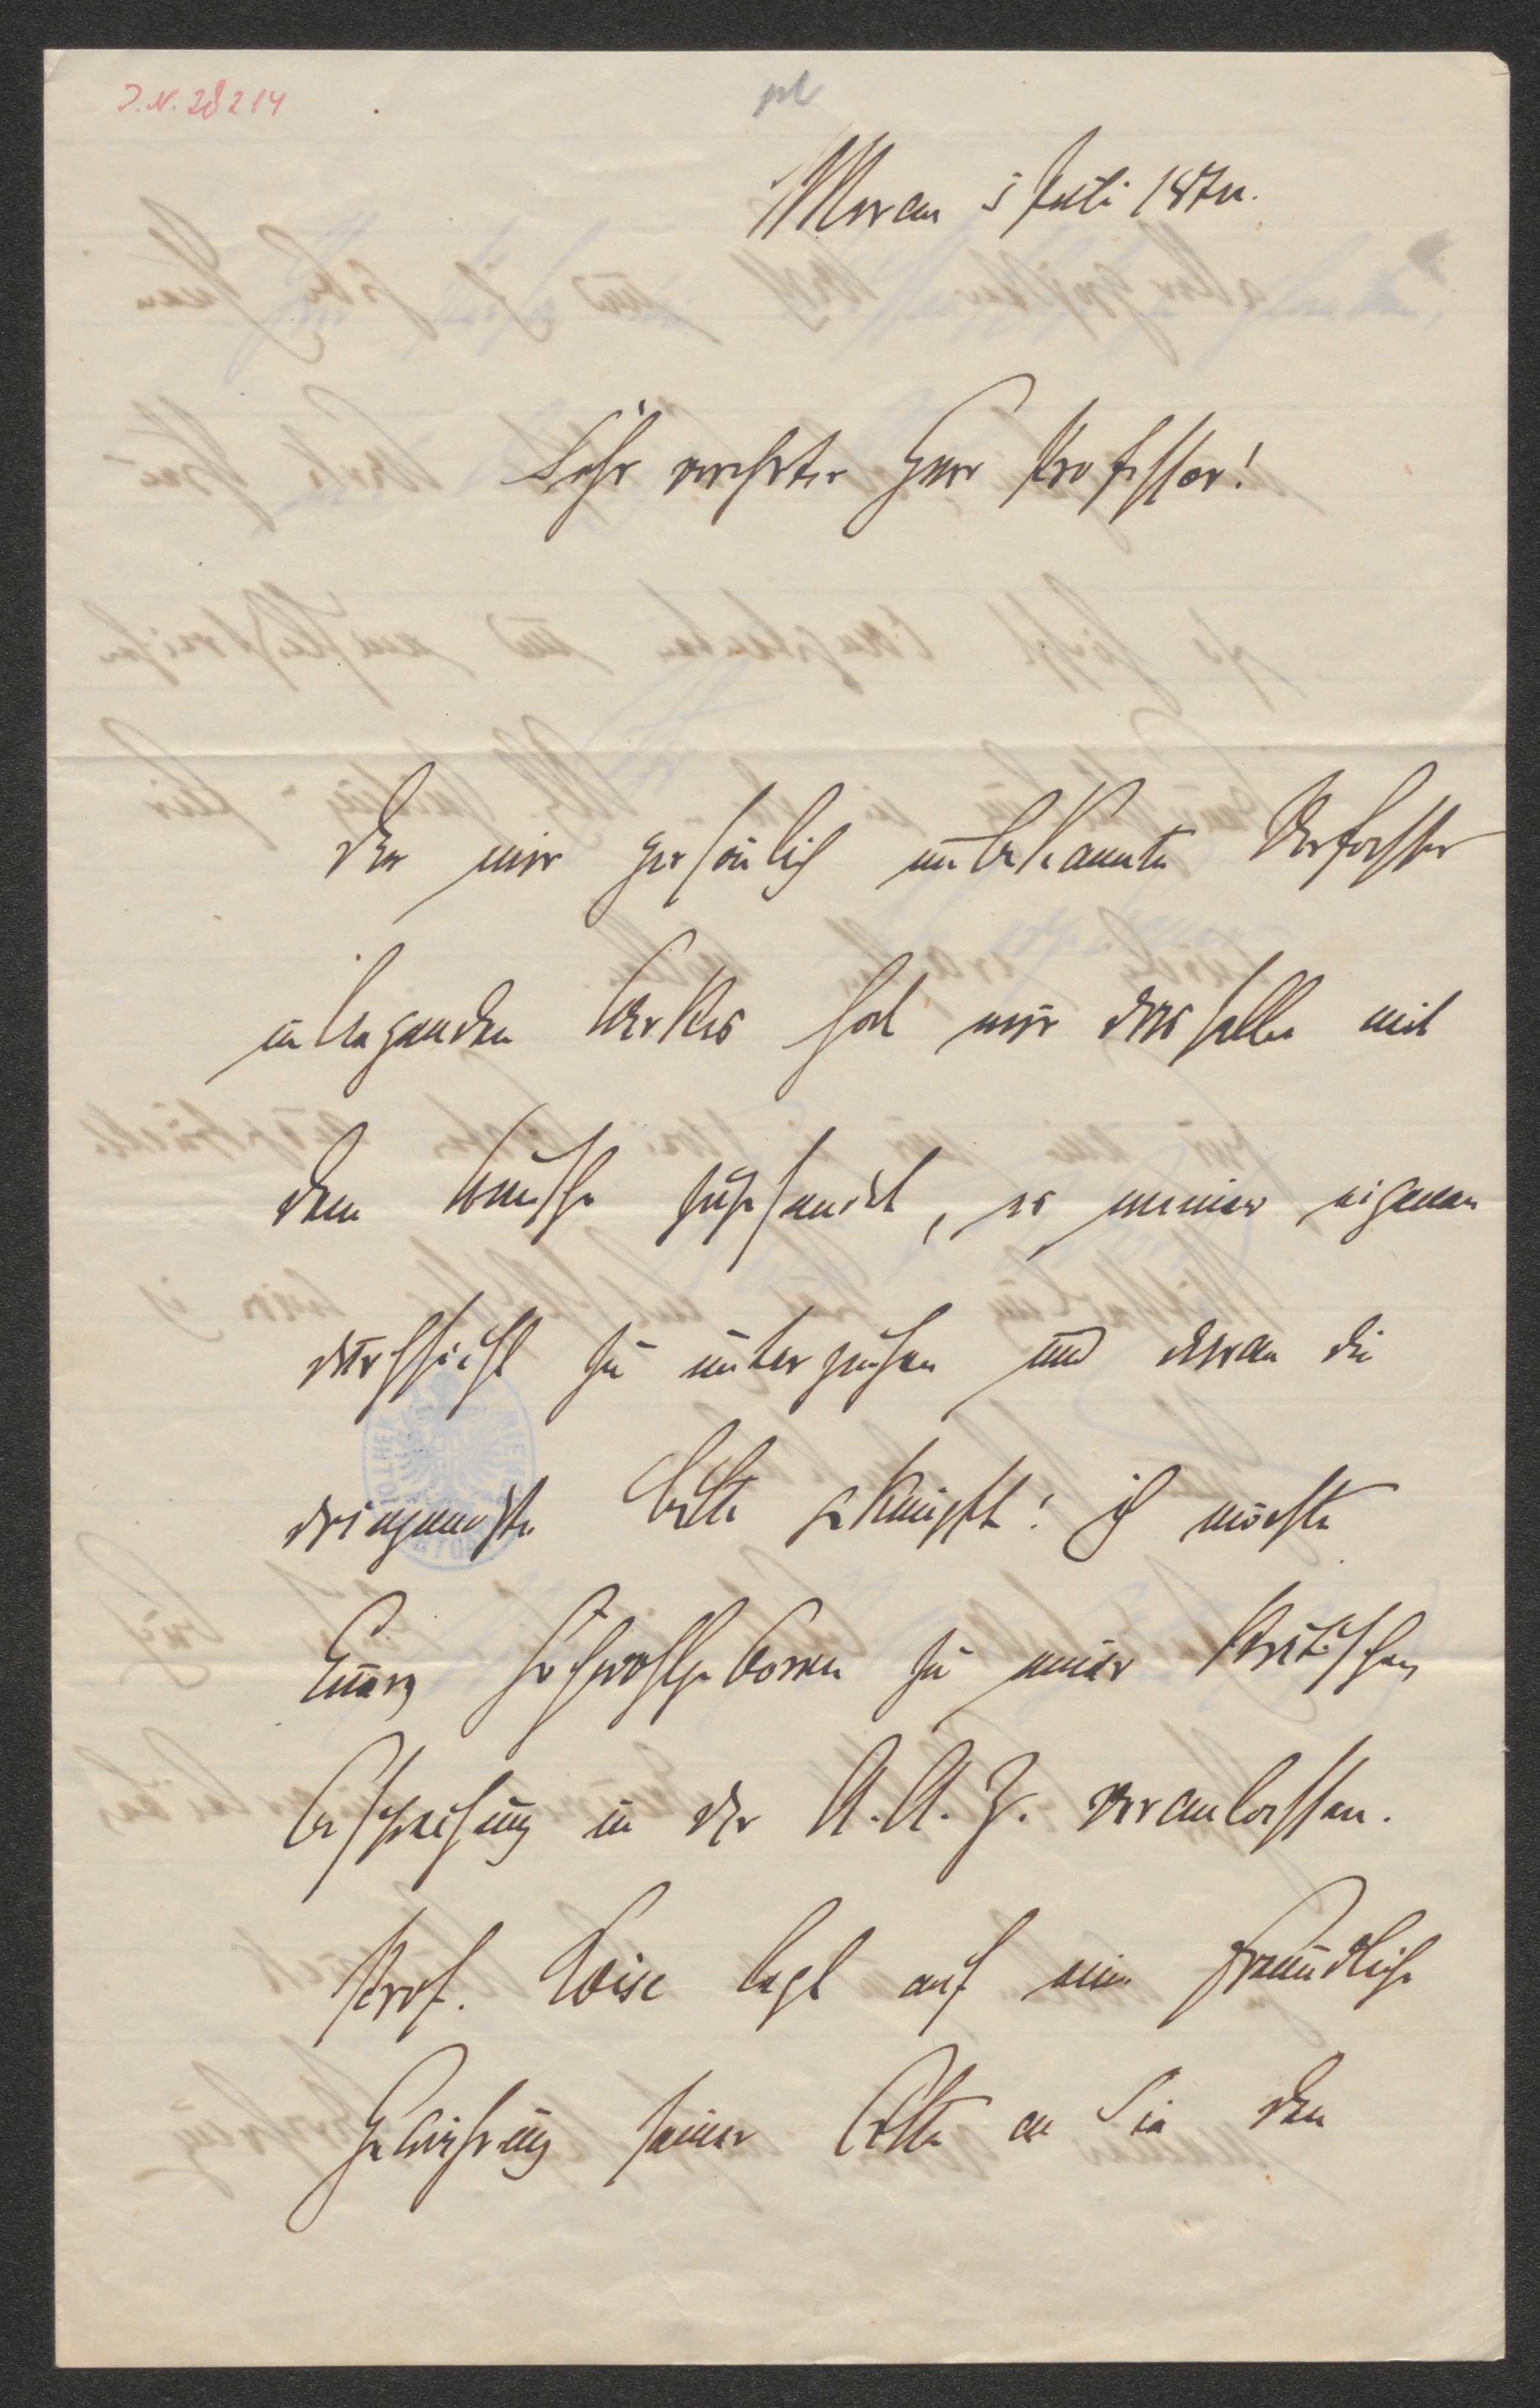 J.N. 28214
Meran 5 Juli 187
Sehr verehrter Herr Professor!
Der mir persönlich unbekannte Verfasser
inliegenden Werkes hat mir dasselbe mit
dem Wunsche zugesandt, es meiner eigenen
Durchsicht zu unterziehen und daran die
dringendste Bitte geknüpft: ich möchte
Euere Hochwohlgeboren zu einer kritischen
Besprechung in der A. A. Z. veranlassen.
Prof. Loise legt auf eine freundliche
Gewährung seiner Bitte an Sie den